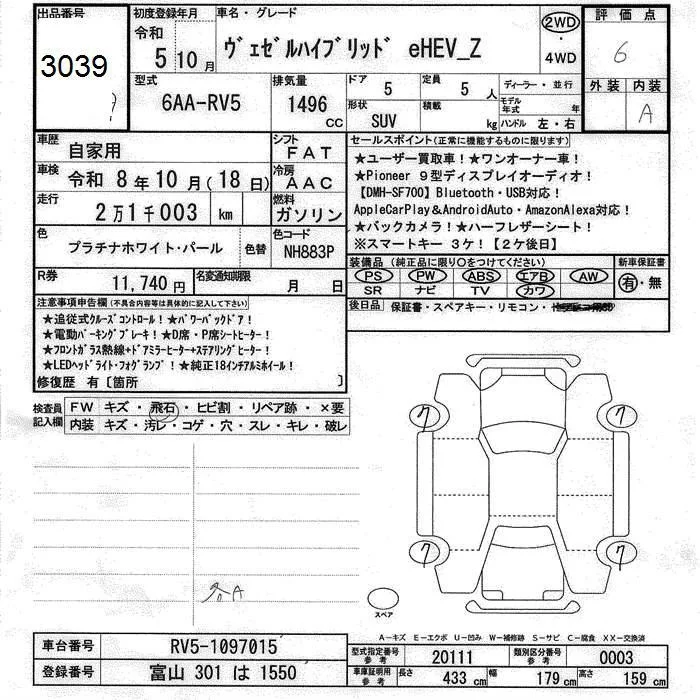 出品番号
3039
初度登録年月
令和
5 10 月
車名・グレード
ヴェゼルハイブリッド eHEV_Z
2WD
・
4WD
評価点
6
外装 内装
A
型式
6AA-RV5
排気量
1496
CC
ドア
5
定員
5 人
形状
SUV
積載
kg
ディーラー・並行
モデル年式 年
ハンドル 左・右
車歴
自家用
シフト
FAT
車検
令和 8 年 10 月(18 日)
冷房
AAC
走行
2 万 1 千 003 km
燃料
ガソリン
色
プラチナホワイト・パール
色替
色コード
NH883P
R券
11,740 円
名変通知期限
月 日
セールスポイント(正常に機能するものに限ります)
★ユーザー買取車!★ワンオーナー車!
★Pioneer 9型ディスプレイオーディオ!
【DMH-SF700】Bluetooth・USB対応!
AppleCarPlay&AndroidAuto・AmazonAlexa対応!
★バックカメラ!★ハーフレザーシート!
※スマートキー 3ケ!【2ケ後日】
装備品(純正品に限り○をつけてください)
PS PW ABS エアB AW
SR ナビ TV カワ
新車保証書
有・無
後日品 保証書・スペアキー・リモコン・
注意事項申告欄(不具合内容等は具体的に記入して下さい)
★追従式クルーズコントロール!★パワーバックドア!
★電動パーキングブレーキ!★D席・P席シートヒーター!
★フロントガラス熱線+ドアミラーヒーター+ステアリングヒーター!
★LEDヘッドライト・フォグランプ!★純正18インチアルミホイール!
修復歴 有〔箇所 〕
検査員記入欄
FW キズ・飛石・ヒビ割・リペア跡・×要
内装 キズ・汚レ・コゲ・穴・スレ・キレ・破レ
7
7
7
7
スペア
A
A-キズ E-エクボ U-凹み W-補修跡 S-サビ C-腐食 XX-交換済
車台番号
RV5-1097015
登録番号
富山 301 は 1550
型式指定番号
参考
20111
類別区分番号
参考
0003
車庫証明用
参考
長さ
433 cm
幅
179 cm
高さ
159 cm